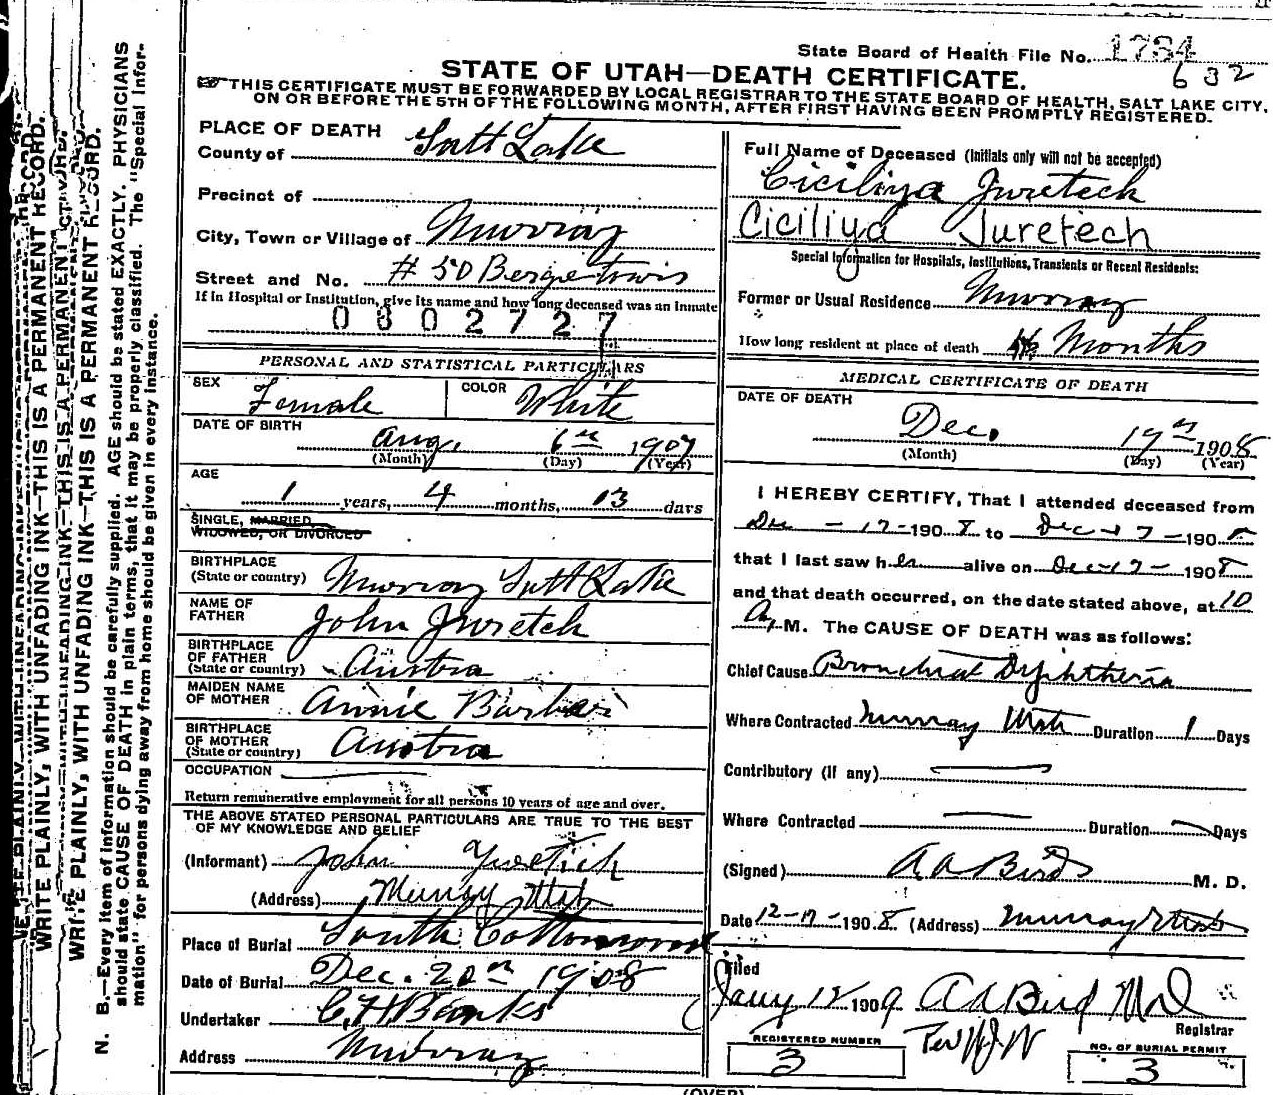 State Board of Health File No. 1734
632
STATE OF UTAH—DEATH CERTIFICATE.
THIS CERTIFICATE MUST BE FORWARDED BY LOCAL REGISTRAR TO THE STATE BOARD OF HEALTH, SALT LAKE CITY,
ON OR BEFORE THE 5TH OF THE FOLLOWING MONTH, AFTER FIRST HAVING BEEN PROMPTLY REGISTERED.
WRITE PLAINLY, WITH UNFADING INK—THIS IS A PERMANENT RECORD.
WRITE PLAINLY, WITH UNFADING INK—THIS IS A PERMANENT RECORD.
N. B.—Every item of information should be carefully supplied. AGE should be stated EXACTLY. PHYSICIANS
should state CAUSE OF DEATH in plain terms, that it may be properly classified. The "Special Infor-
mation" for persons dying away from home should be given in every instance.
PLACE OF DEATH
County of Salt Lake
Precinct of
City, Town or Village of Murray
Street and No. # 50 Bergertown
If in Hospital or Institution, give its name and how long deceased was an inmate
0802727
PERSONAL AND STATISTICAL PARTICULARS
SEX Female COLOR White
DATE OF BIRTH
Aug. 6th 1907
(Month) (Day) (Year)
AGE
1 years, 4 months, 13 days
SINGLE, MARRIED,
WIDOWED, OR DIVORCED
BIRTHPLACE
(State or country) Murray Salt Lake
NAME OF
FATHER John Juretch
BIRTHPLACE
OF FATHER
(State or country) Austria
MAIDEN NAME
OF MOTHER Annie Barbari
BIRTHPLACE
OF MOTHER
(State or country) Austra
OCCUPATION
Return remunerative employment for all persons 10 years of age and over.
THE ABOVE STATED PERSONAL PARTICULARS ARE TRUE TO THE BEST
OF MY KNOWLEDGE AND BELIEF
(Informant) John Juretich
(Address) Murray Utah
Place of Burial South Cottonwood
Date of Burial Dec. 20th 1908
Undertaker C.H Banks
Address Murray
Full Name of Deceased (Initials only will not be accepted)
Ciciliya Juretech
Ciciliya Juretech
Special Information for Hospitals, Institutions, Transients or Recent Residents:
Former or Usual Residence Murray
How long resident at place of death Months
MEDICAL CERTIFICATE OF DEATH
DATE OF DEATH
Dec. 19th 1908
(Month) (Day) (Year)
I HEREBY CERTIFY, That I attended deceased from
Dec - 17 - 1908 to Dec 17 - 1908
that I last saw her alive on Dec-17- 1908
and that death occurred, on the date stated above, at 10
A. M. The CAUSE OF DEATH was as follows:
Chief Cause Bronchial Dyphtheria
Where Contracted Murray Utah Duration 1 Days
Contributory (If any)
Where Contracted Duration Days
(Signed) A A Bird M. D.
Date 12-19-1908 (Address) Murray Utah
Filed
Jany 12 1909 A A Bird MD
Registrar
Per WJW
REGISTERED NUMBER
3
NO. OF BURIAL PERMIT
3
(OVER)